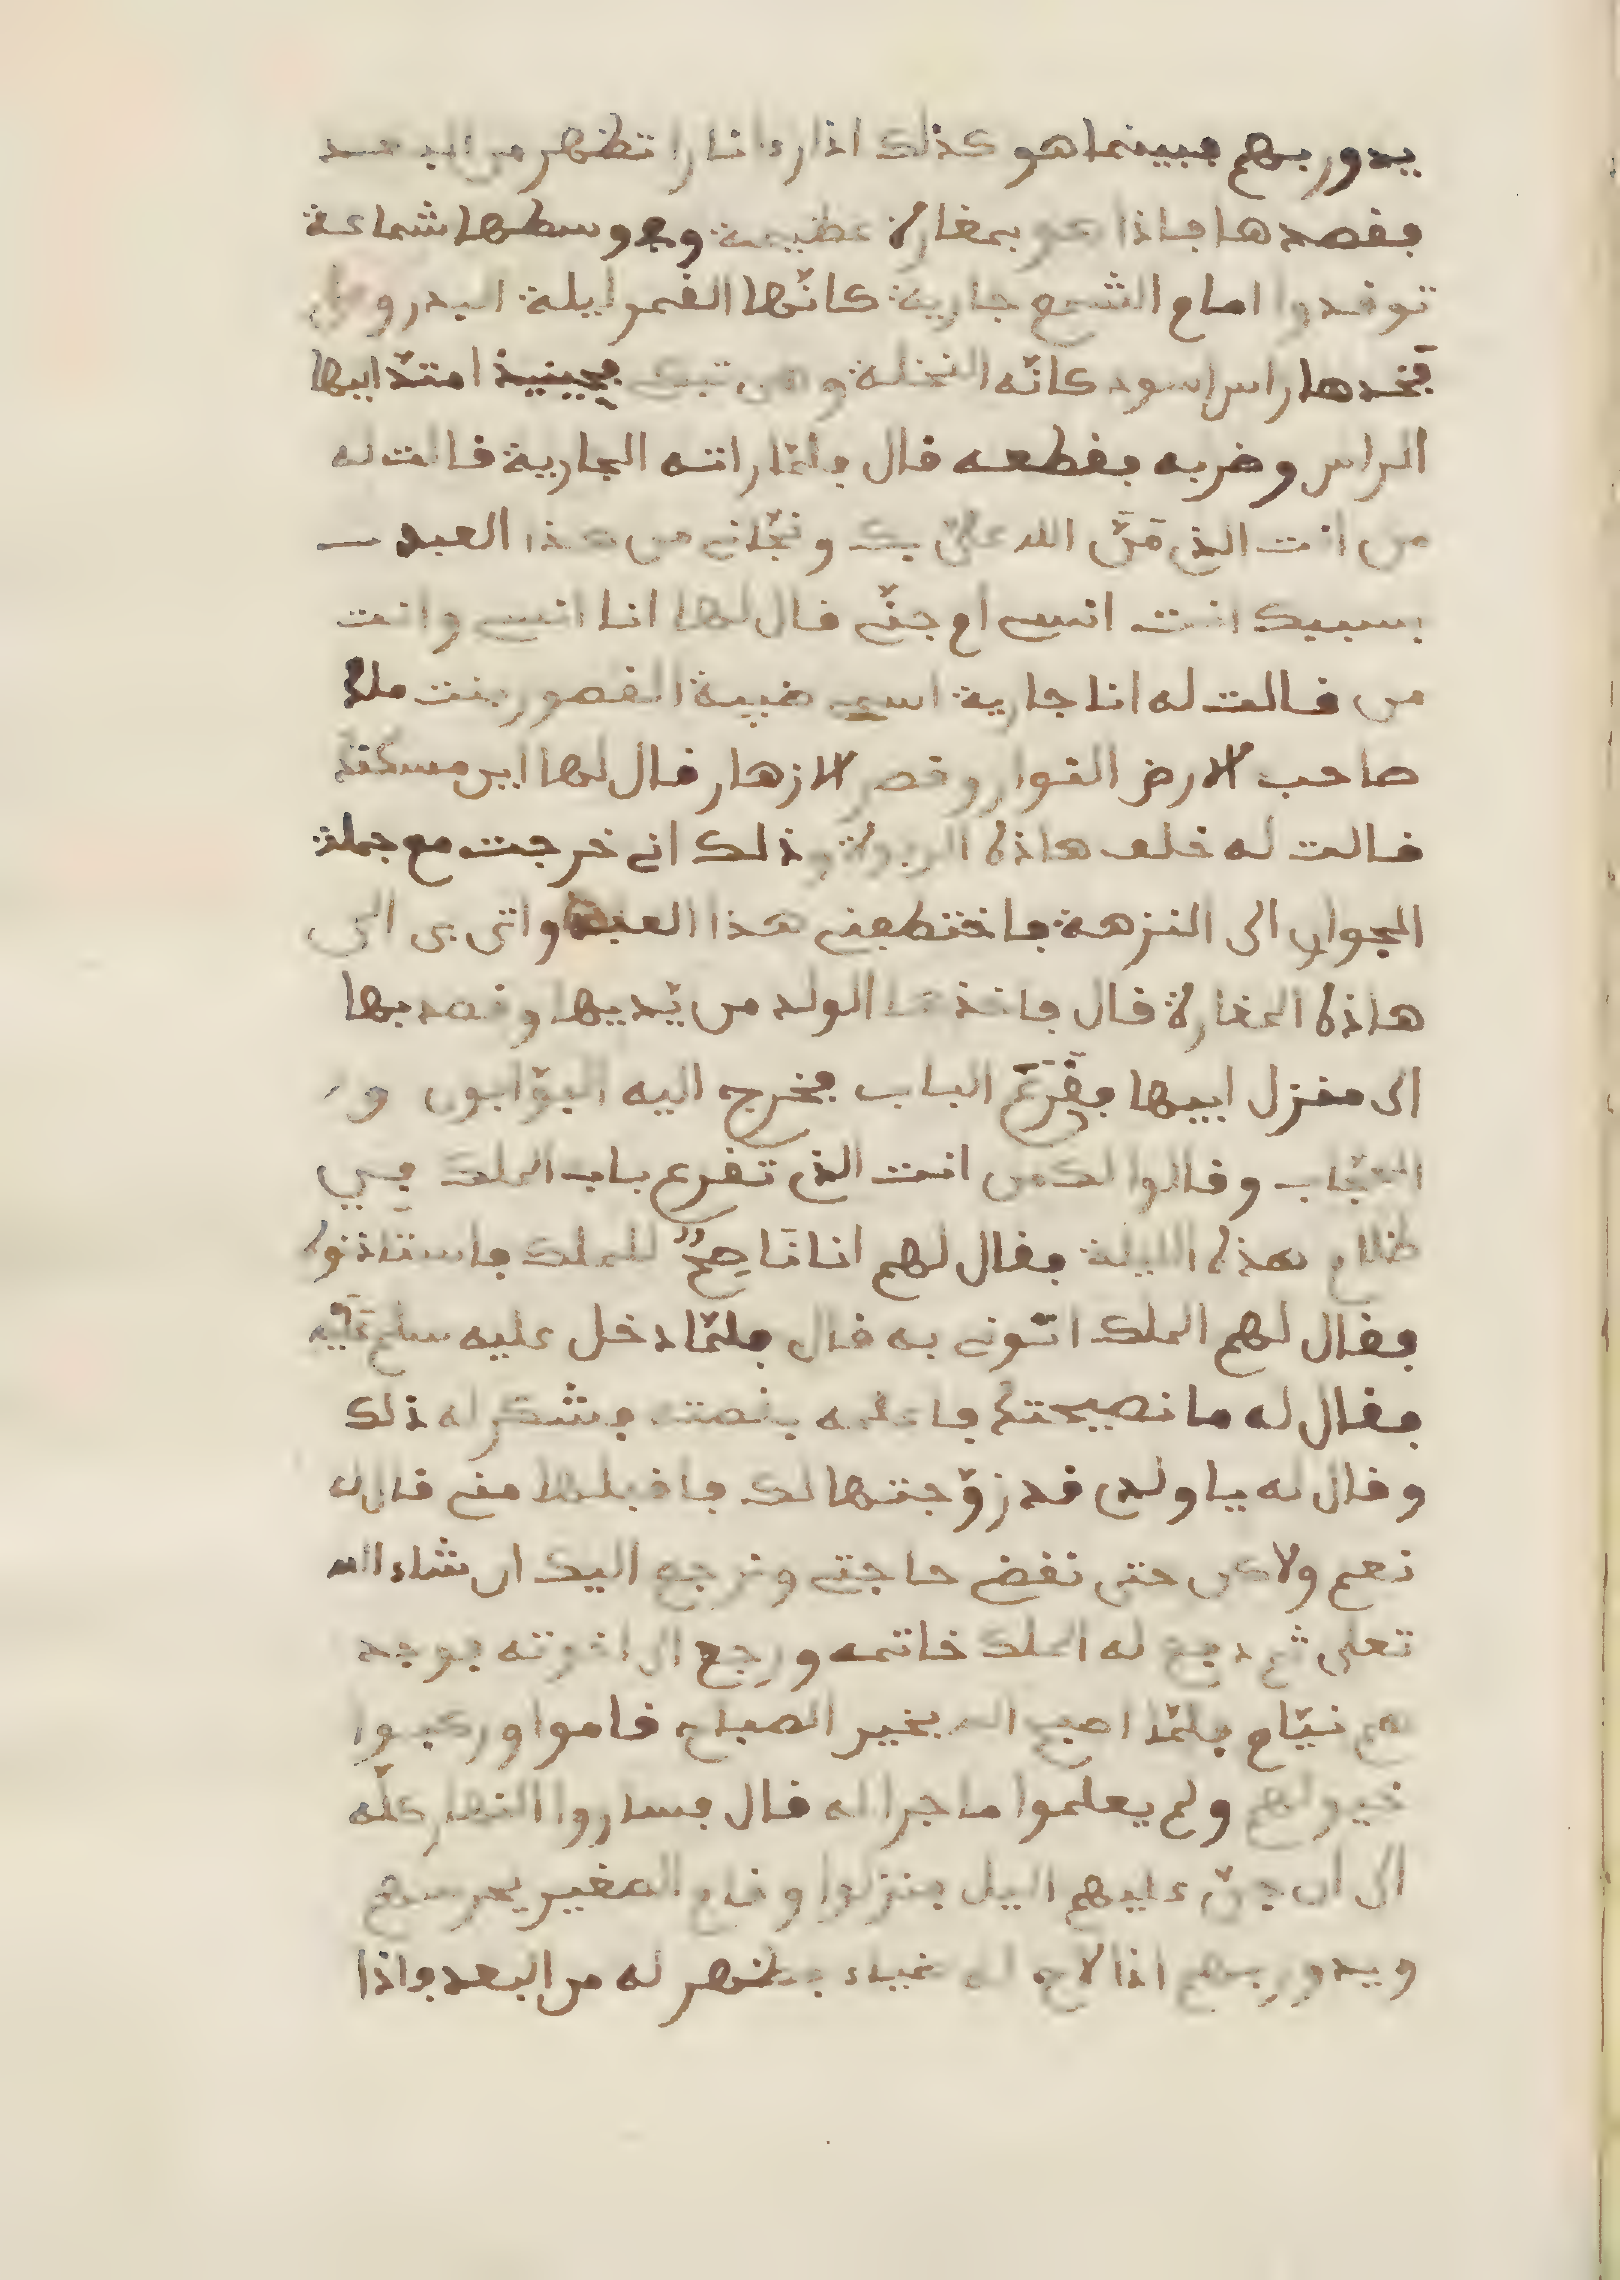 يدور بهم فبينما هو كذلك اذا راء نارا تظهر من البعد
فقصدها فاذا هو بمغارة عظيمة وفي وسطها شماعة
توقد وامام الشمع جارية كانّها القمر ليلة البدر وعلى
فخدها راس اسود كانّه النخلة وهى تبكى فحينيذ امتدّ اليها
الراس وضربه فقطعه قال فلمّا راته الجارية قالت له
من انت الذى مَنَّ الله علىّ بك ونجّانى من هذا العبد
بسببك انت انسى ام جنّى قال لها انا انسى وانت
من قالت له انا جارية اسمى ضبية القصور بنت ملك
صاحب الارض النوار وقصر الازهار قال لها اين مسكنك
قالت له خلف هاذه الربوة وذلك انى خرجت مع جملة
الجوار الى النزهة فاختطفنى هذا العبد واتى بى الى
هاذه المغارة قال فاخذها الولد من يّديها وقصد بها
الى منزل ابيها فقَرَعَ الباب فخرج اليه البوّابون و
الحجّاب وقالوا له من انت الذى تقرع باب الملك في
ظلام هذه الليلة فقال لهم انا نَاصِحٌ للملك فاستاذنوا
فقال لهم الملك اتونى به قال فلمّا دخل عليه سلم عَلَيه
فقال له ما نصيحتك فاعلمه بقصته فشكر له ذلك
وقال له يا ولدى قد زوّجتها لك فاقبلها منى قال له
نعم ولاكن حتى نقضى حاجتى ونرجع اليك ان شاء الله
تعلى ثم دفع له الملك خاتمه ورجع الى اخوته فوجد
هم نيّام فلمّا اصبح الله بخير الصباح قاموا وركبوا
خيولهم ولم يعلموا ما جرا له قال فساروا النهار كلّه
الى ان جنّ عليهم اليل فنزلوا وقام الصغير يحرسهم
ويدور بهم اذا لاح له ضياء فظهر له من البعد واذا